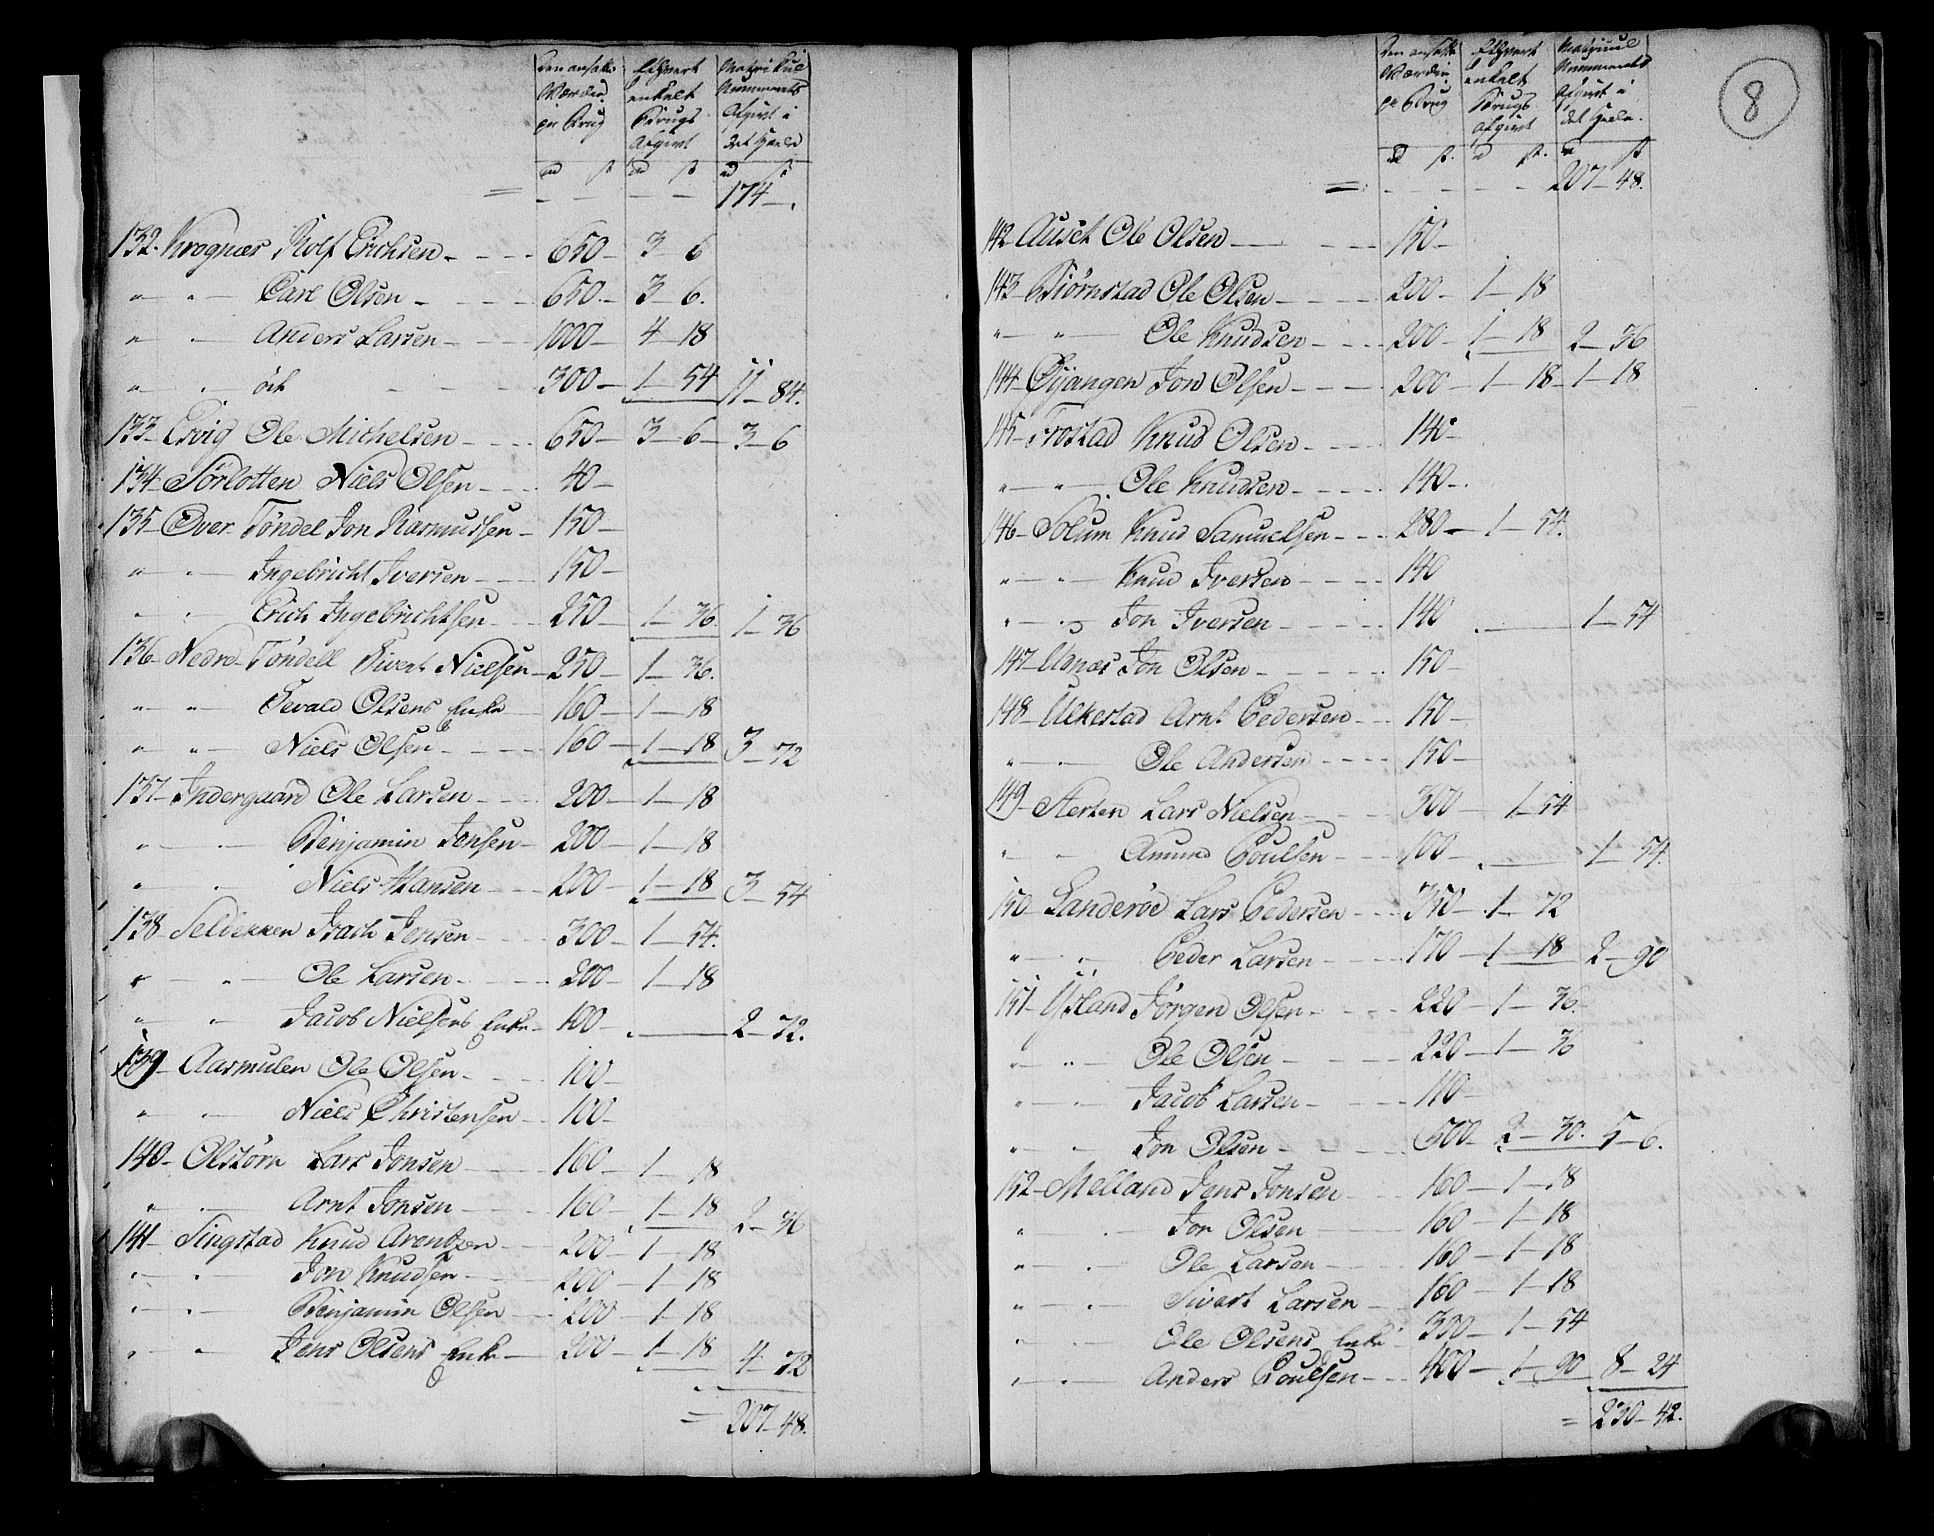 Den ansatte Ethvert Matrikul
Værdie enkelt Nummerets
pr Brug Brugs Afgivt i
Afgivt det Heele
rd s rd s rd s
= - - - - 174 - .
132. Krognæs Rolf Erichsen - 650 - 3 - 6
" " - Carl Olsen - 650 - 3 - 6.
" - Anders Larsen - 1000 - 4 - 18
" - öde - 300 - 1 - 54 11 - 84.
133 - Esvig Ole Michelsen - 650 - 3 - 6 - 3 - 6
134 - Sörlotten Niels Olsen - 40 -
135 - Over Töndel Jon Rasmussen - 150 -
" " - Ingebricht Iversen - 150 -
" " - Erich Ingebrichtsen - 250 - 1 - 36. 1 - 36
136 - Nedre Töndell Sivert Nielsen - 250 - 1 - 36.
" " - Sevald Olsens Enke 160 - 1 - 18
" " - Niels Olsen - 160 - 1 - 18 3 - 72
137 - Indergaard Ole Larsen - 200 - 1 - 18
" - Benjamin Jonsen - 200 - 1 - 18
" - Niels Hansen - 200 - 1 - 18 3 - 54
138 - Seldekken Isach Jensen - 300 - 1 - 54.
" " - Ole Larsen - 200 - 1 - 18
" " Jacob Nielsens Enke - 100 - 2 - 72.
139 - Aasmulen Ole Olsen - 100 -
" " - Niels Christensen - 100 -
140 - Olstörn Lars Jonsen - 160 - 1 - 18
" - Arnt Jonsen - 160 - 1 - 18 2 - 36
141 - Singstad Knud Arentzen - 200 - 1 - 18
" " - Jon Knudsen - 200 - 1 - 18
" " - Benjamin Olsen - 200 - 1 - 18
" " - Jens Olsens Enke - 200 - 1 - 18 4 - 72
= 207 - 48.
8
Den ansatte Ethvert Matricul
Værdie enkelt Nummerets
pr Brug Brugs Afgivt i
Afgivt det Heele.
rd s. rd s. rd s
= - - - - 207 - 48.
142 - Auset Ole Olsen - 150 -
143 - Biörnstad Ole Olsen - 200 - 1 - 18
" " Ole Knudsen - 200 - 1 - 18 2 - 36
144 - Oyangen Jon Olsen - 200 - 1 - 18 - 1 - 18
145 - Frostad Knud Olsen - 140 -
" " - Ole Knudsen - 140 - .
146 - Solum Knud Samuelsen - 280 - 1 - 54.
" " - Knud Iversen - 140
" " Jon Iversen - 140 - 1 - 54
147 - Udnæs Jon Olsen - 150 -
148 - Ulkestad Arnt Pedersen - 150 -
" - Ole Andersen - 150 -
149 - Stersen Lars Nielsen - 300 - 1 - 54
" " Amund Poulsen - 100 - 1 - 54.
150 - Landeröe Lars Pedersen - 350 - 1 - 72
" " - Peder Larsen - 170 - 1 - 18 2 - 90
151 - Ysland Jörgen Olsen - 220 - 1 - 36.
" " - Ole Olsen - 220 - 1 - 36
" - Jacob Larsen - 110 -
" " Jon Olsen - 500 - 2 - 30. 5 - 6.
152 - Melland Jens Jonsen - 160 - 1 - 18
" - Jon Olsen 160 - 1 - 18
" - Ole Larsen - 160 - 1 - 18
" - Sivert Larsen - 160 - 1 - 18
" - Ole Olsens Enke 330 - 1 - 54
" - Anders Poulsen - 400 - 1 - 90 8 - 24
= 230 - 42.